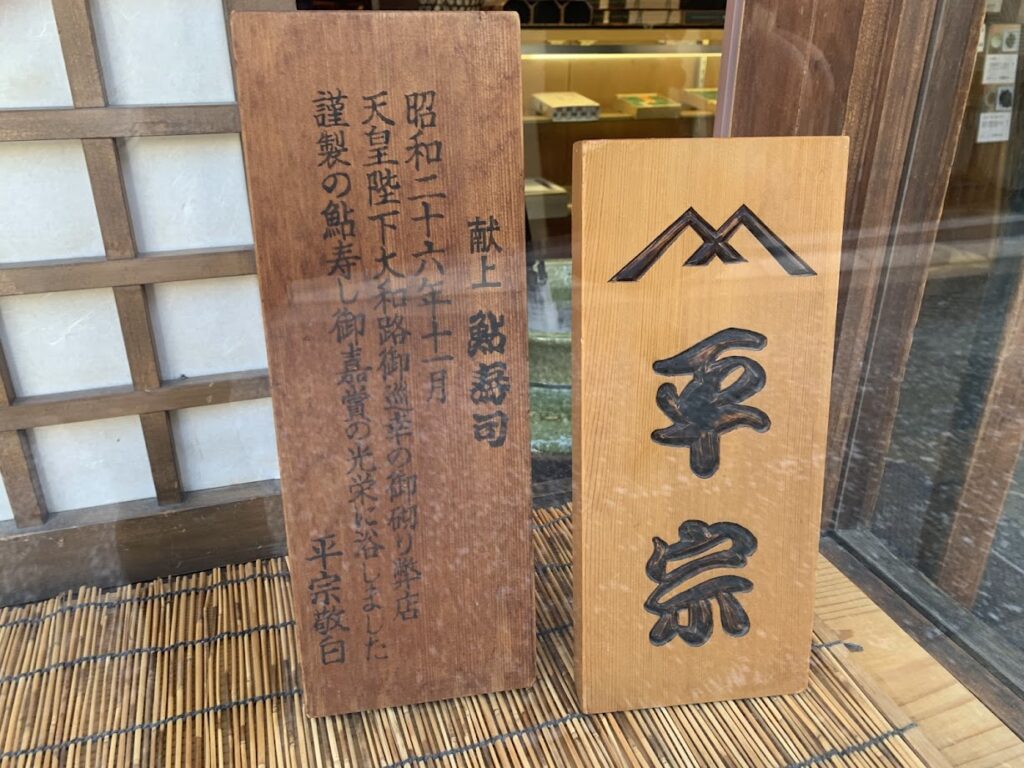 献上 鮎寿司
昭和二十六年十一月
天皇陛下大和路御巡幸の御砌り弊店
謹製の鮎寿し御嘉賞の光栄に浴しました
平宗敬白
平宗